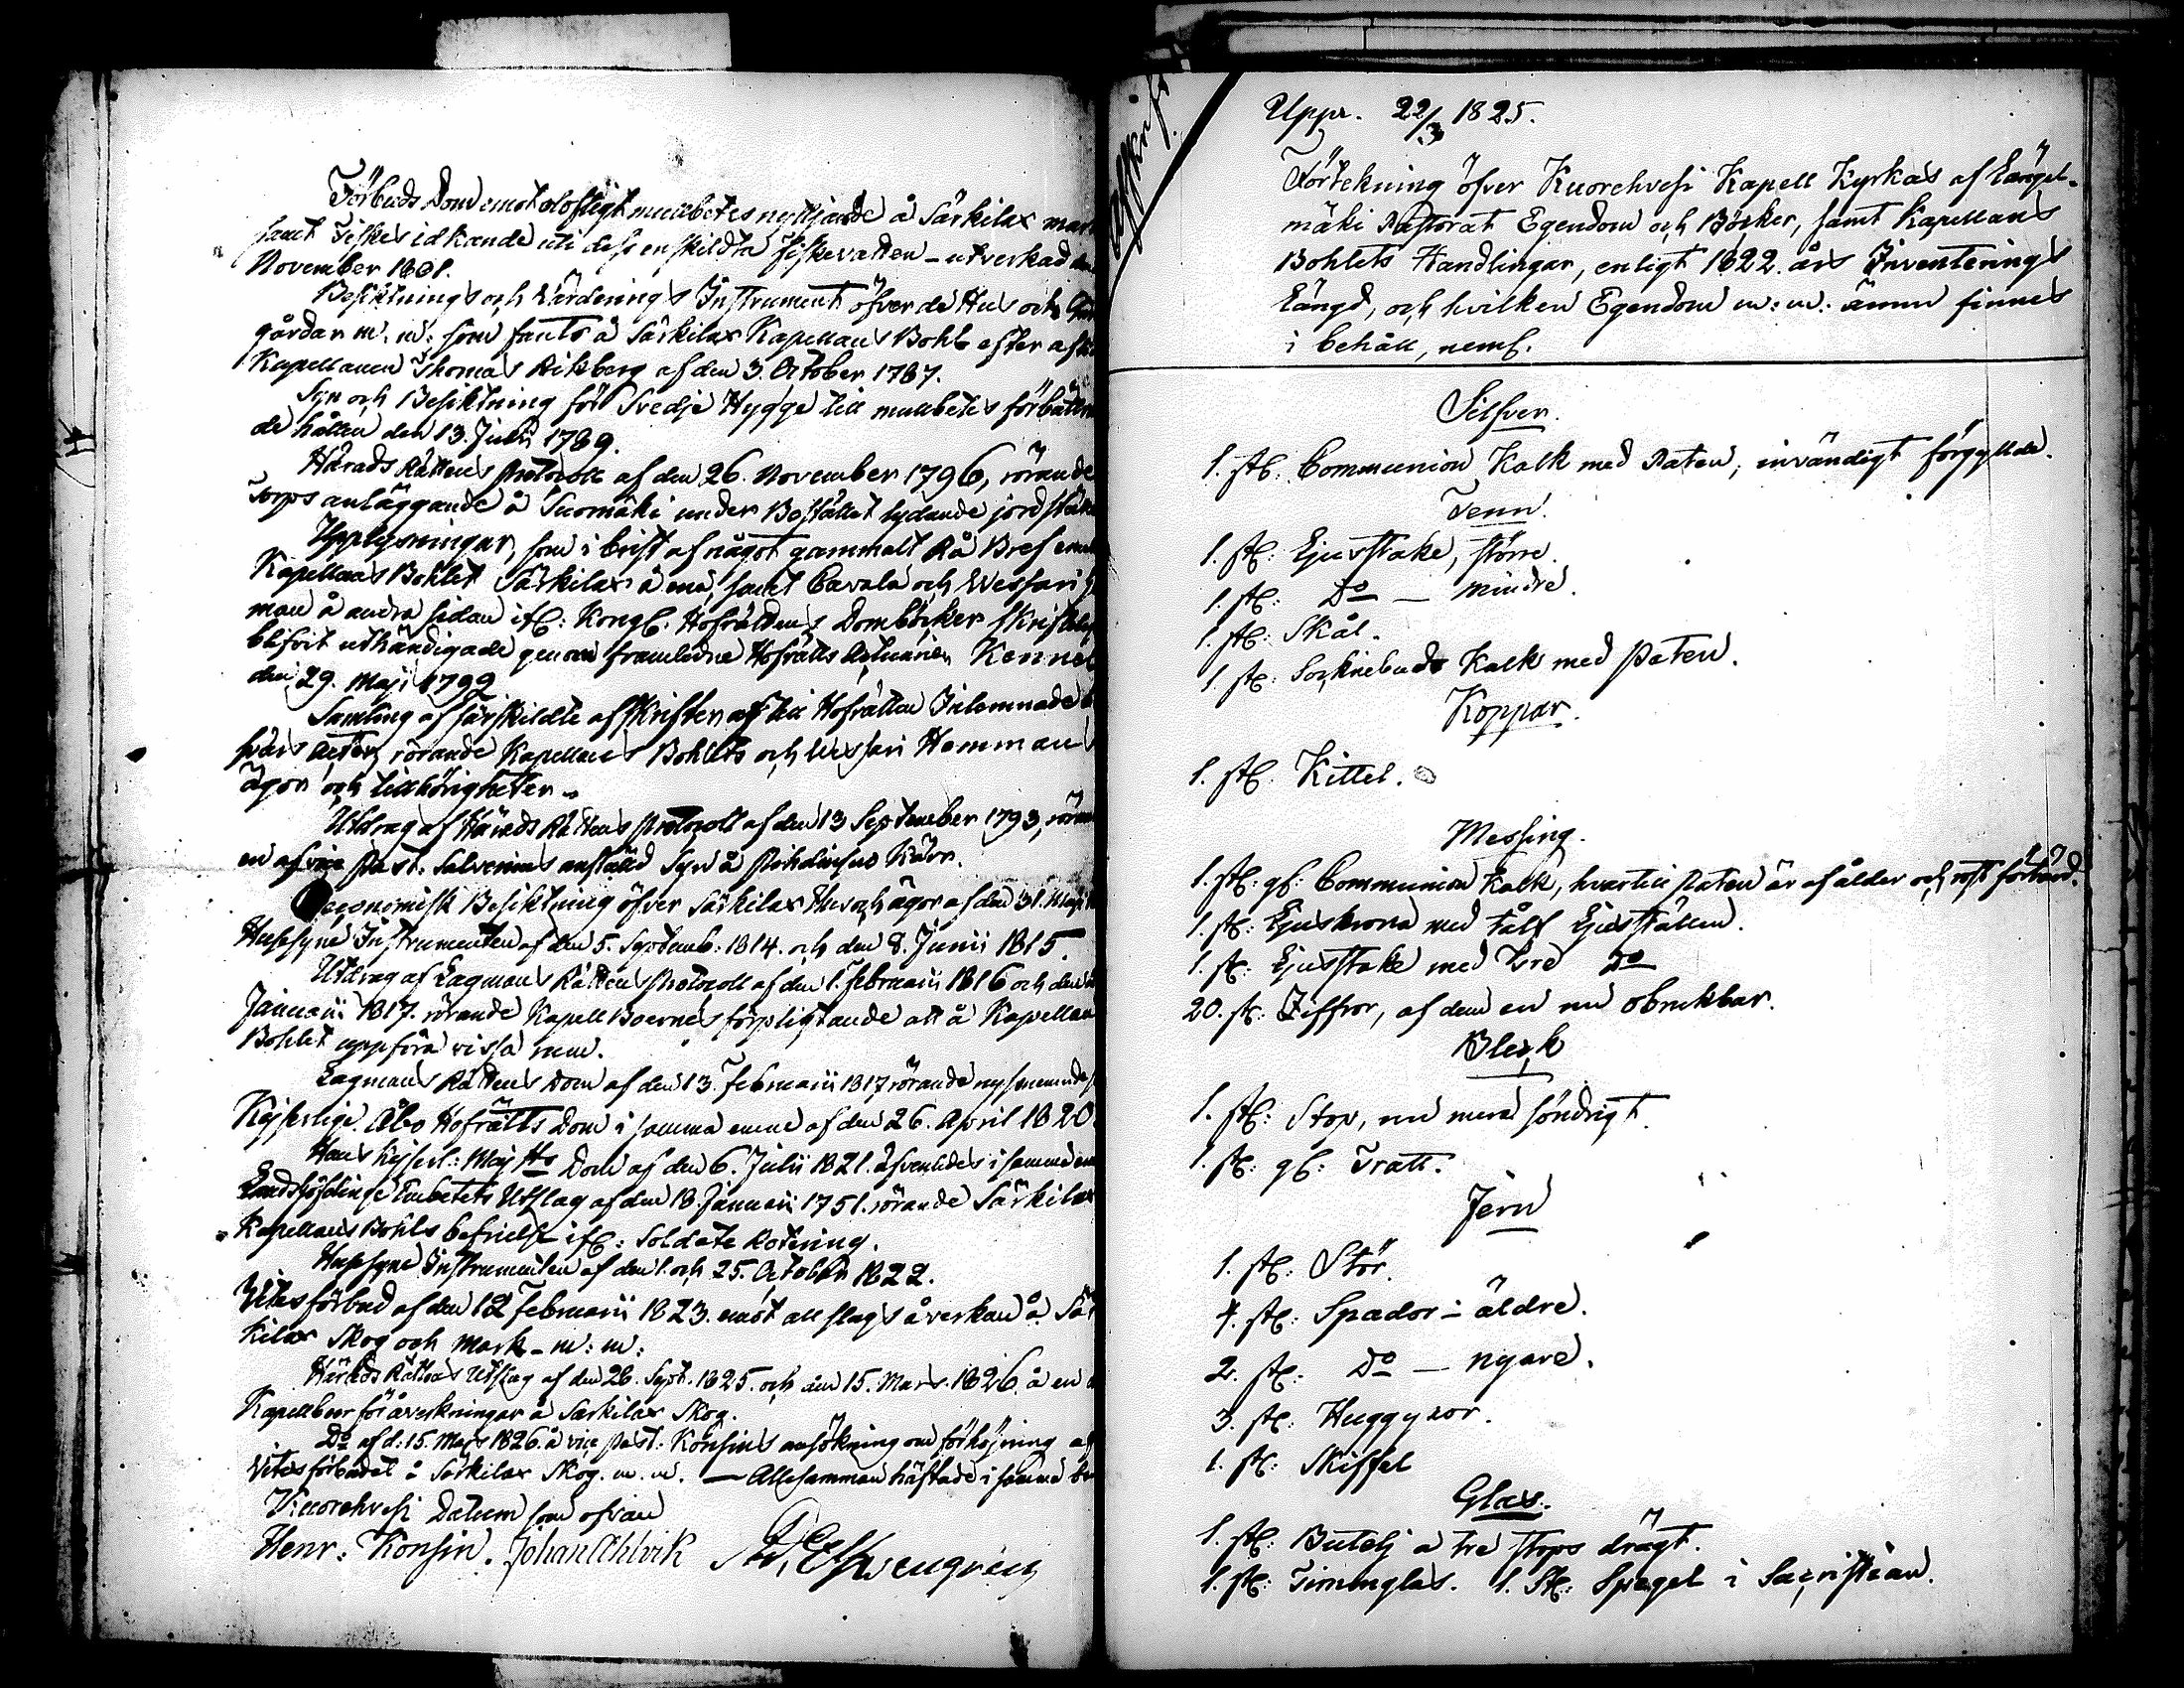 Förbuds Dom emot olofligt mulbetes nyttjande å Särkilax mar
samt Fiskes idkande uti dess enskildta fiskevatten - utverkad den
November 1801.
Besiktnings och Värderings Instrument öfver de Hus och
gårdar m. m: som fants å Särkilax Kapellans Bohl efter
Kapellanen Thomas Rikberg af den 3. October 1787.
Syn och Besiktning för Svedje Hygge till mulbetes förbättran
de hållen den 13. Julii 1789.
Härads Rättens Protocoll af den 26. November 1796, rörande
Torps anläggande å Suomäki under Bostället lydande jord
Upplysningar, som i brist af något gammalt Rå Bref emel
Kapellans Bohlet Särkilax å ena, samt Cavala och Wessari
man å andra sidan ifr: Kongl: Hofrättens Domböcker skriftelig
blifvit uthändigade genom framledne Hofrätts Actuarien Kennel
den 29. Maji 1799
Samling af särskildte afskrifter af till Hofrätten Inlemnade
svars Acter, rörande Kapellans Bohlets och Wessari Hemmans
ägor och tillhörigheter.
Utdrag af Härads Rättens Protocoll af den 13 September 1793, röran
en af vice Past: Salvenius anställd Syn å Kärr.
Oeconomisk Besiktning öfver Särkilax Hus och ägor af den 31. Maji
Husesyns Instrumenten af den 5. Septemb: 1814. och den 8. Junii 1815.
Utdrag af Lagmans Rättens Protocoll af den 1. Februarii 1816 och den
Januarii 1817. rörande Kapell Boernes förpligtande att å Kapellans
Bohlet uppföra vissa rum.
Lagmans Rättens Dom af den 13. Februarii 1817, rörande nyssnämnde
Kejserlige Åbo Hofrätts Dom i samma ämne af den 26. April 1820
Hans Kejserl: Maj:ts Dom af den 6. Julii 1821. äfvenledes i samma äm
Landshöfdinge Embetets Utslag af den 18. Januarii 1751. rörande Särkilax
Kapellans Bohls befrielse ifr: Soldate Rotering.
Husesyns Instrumenten af den 1. och 25. October 1822.
Vites förbud af den 12 Februarii 1823. emot all slags åverkan å Sär
kilax Skog och Mark - m: m:
Härads Rättens Utslag af den 26. Sept. 1825. och den 15. Mars. 1826. å en
Kapellboer för åverkningar å Särkilax Skog.
Do af d: 15. Mars 1826. å vice Past: Konsins ansökning om förhöjning af
Vites förbudet å Särkilax Skog. m. m. — Allesamman häftade i samma
Kuorehvesi Datum som ofvan
Henr: Konsin. Johan Ahlvik
Afskrift.
Uppr. 22/3 1825.
Förtekning öfver Kuorehvesi Kapell Kyrkas af Längel-
mäki Pastorat Egendom och Böcker, samt Kapellans
Bohlets Handlingar, enligt 1822. års Inventerings
Längd, och hvilken Egendom m: m: ännu finnes
i behåll, neml.
Silfver.
1. st: Communion Kalk med Paten, invändigt förgyllde.
Tenn.
1. st: Ljusstake, större.
1. st: Do — mindre.
1. st: Skål.
1. st: Socknebuds Kalk med Paten.
Koppar.
1. st: Kittel.
Messing.
1. st: gl: Communion Kalk, hvartill Paten är af ålder och rost förtärd.
1. st: Ljuskrona med tålf Ljusställen.
1. st: Ljusstake med tre Do
20. st: Ziffror, af dem en nu obrukbar.
Bleck
1. st: Stop, nu mera söndrigt.
1. st: gl: Tratt.
Jern
1. st: Stör.
4. st: Spador - äldre.
2. st: Do — nyare.
3. st: Huggyxor.
1. st: Skiffel
Glas.
1. st: Butelj a tre stops drägt.
1. st: Timmglas. 1. St: Spegel i Sacristian.